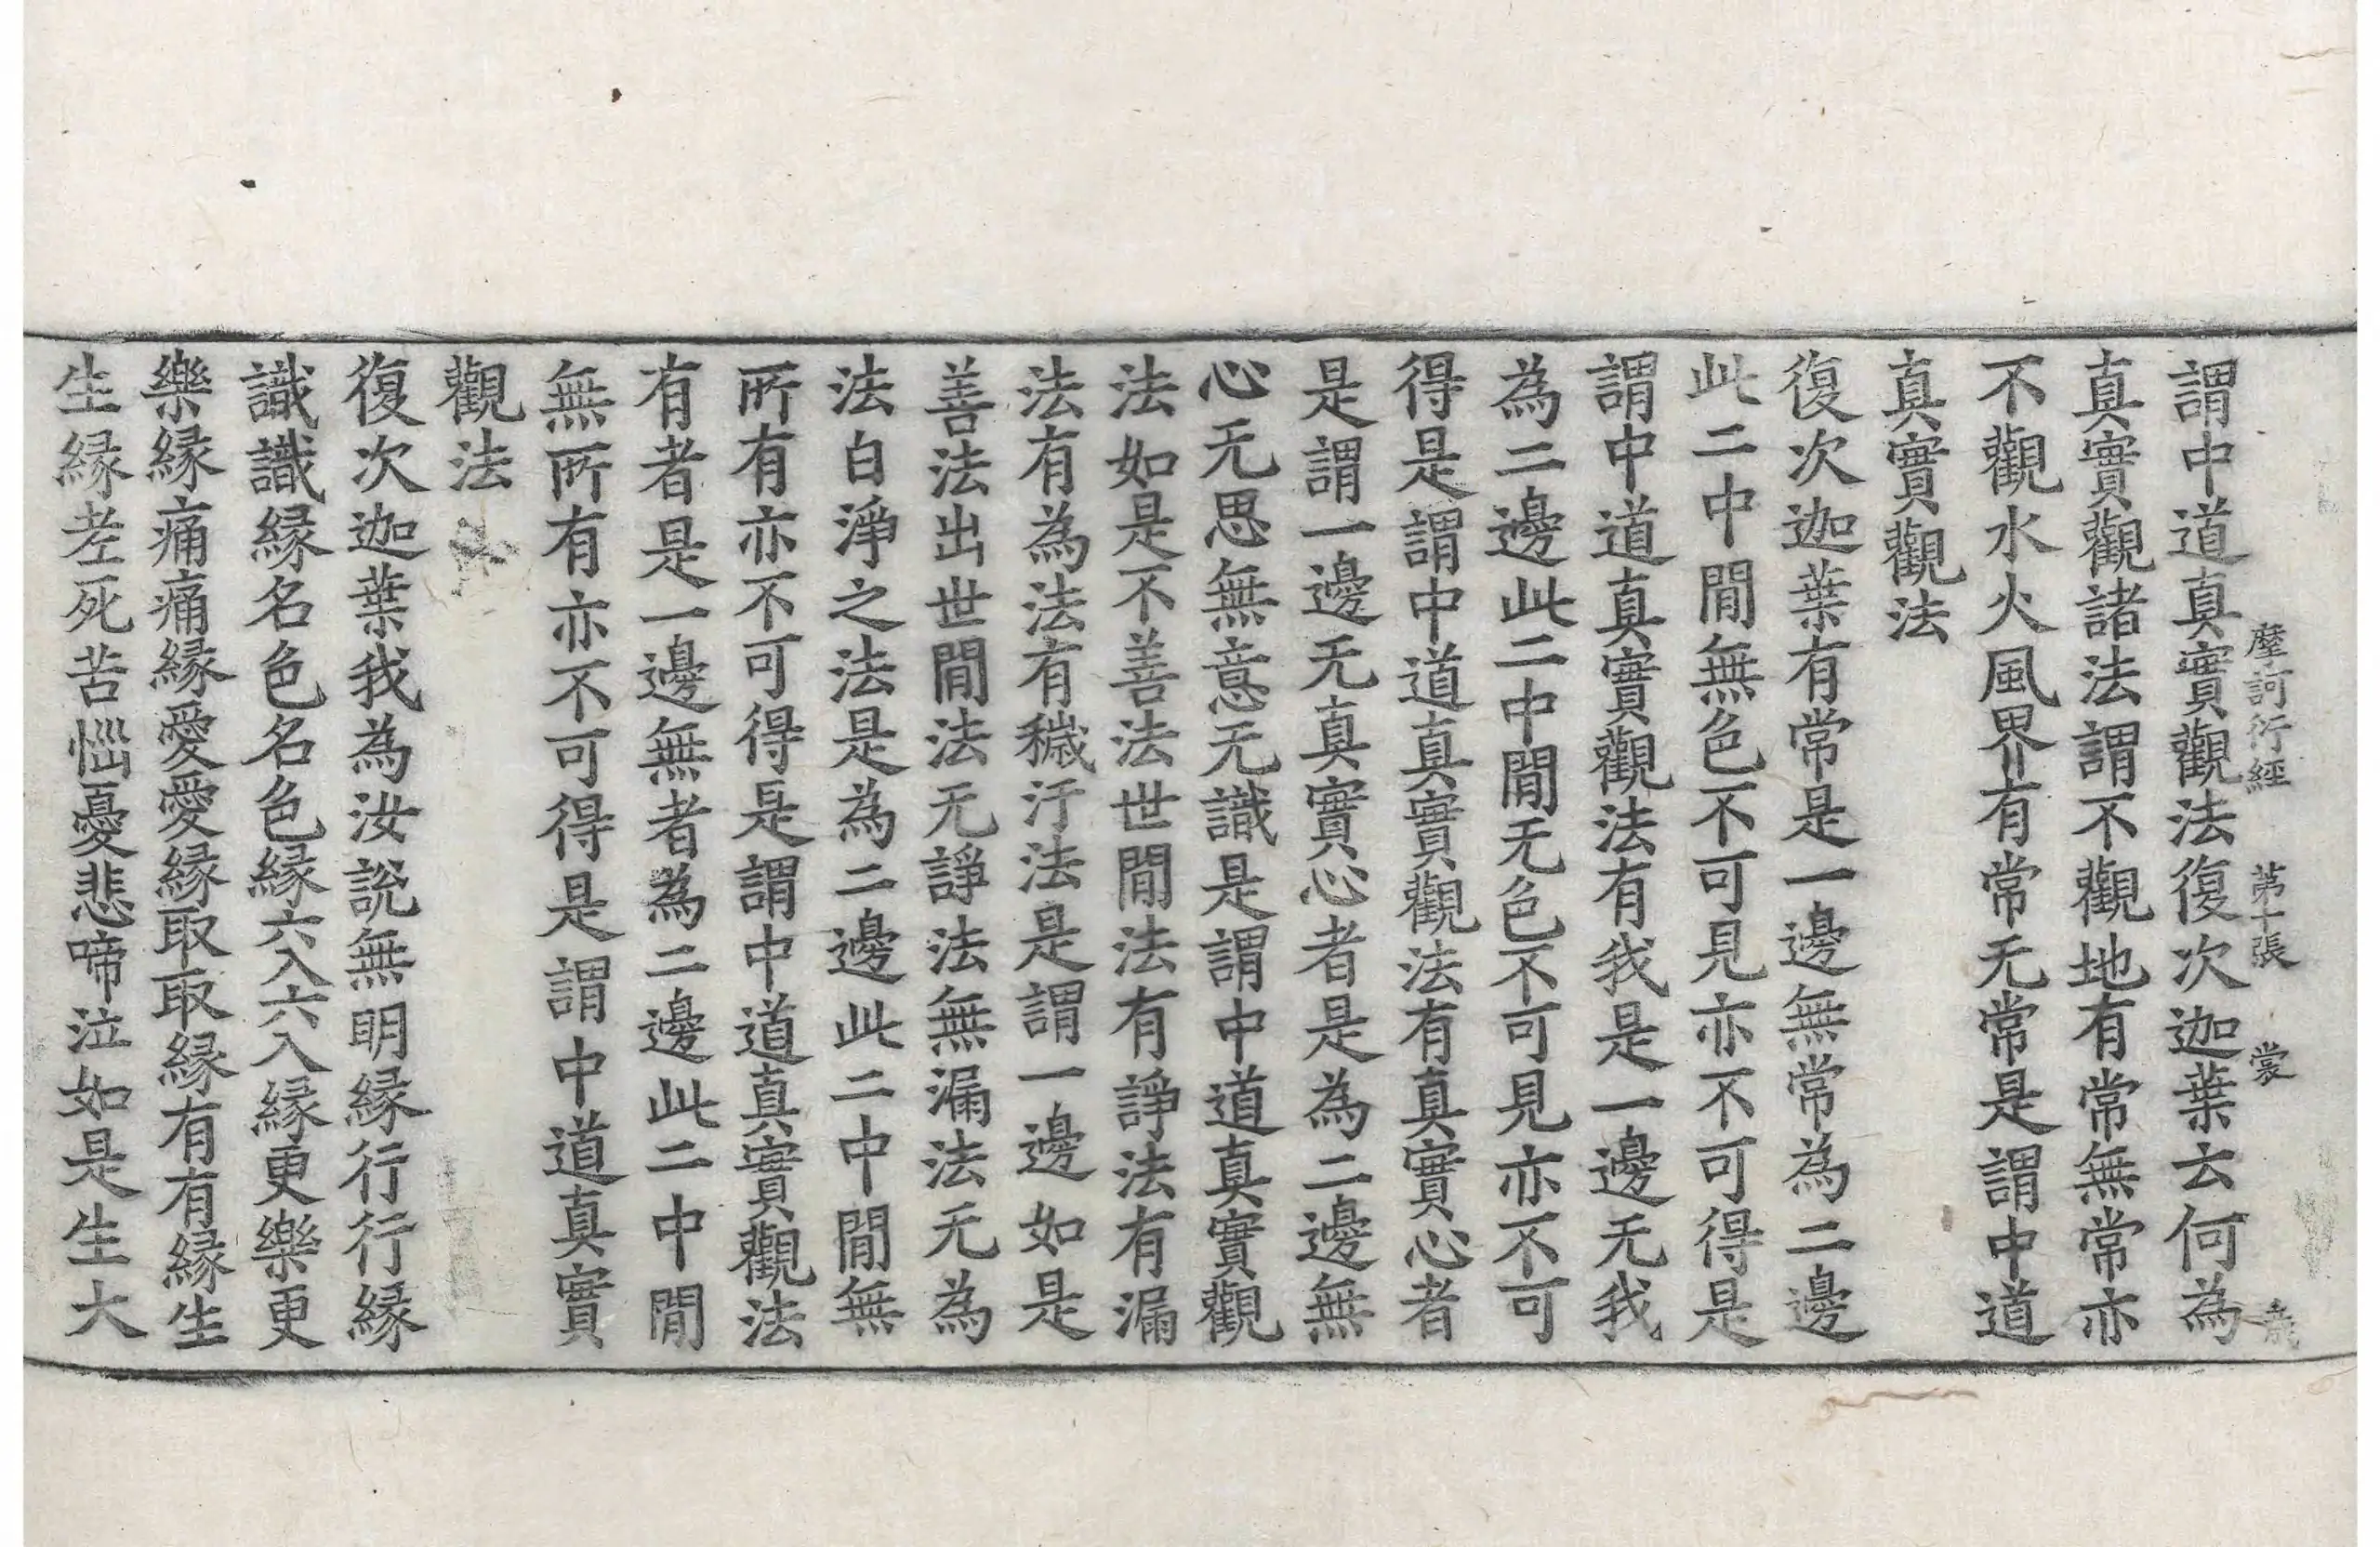 摩訶衍經　第十張　裳
謂中道真實觀法復次迦葉云何為
真實觀諸法謂不觀地有常無常亦
不觀水火風界有常无常是謂中道
真實觀法
復次迦葉有常是一邊無常為二邊
此二中間無色不可見亦不可得是
謂中道真實觀法有我是一邊无我
為二邊此二中間无色不可見亦不可
得是謂中道真實觀法有真實心者
是謂一邊无真實心者是為二邊無
心无思無意无識是謂中道真實觀
法如是不善法世間法有諍法有漏
法有為法有穢汙法是謂一邊如是
善法出世間法无諍法無漏法无為
法白淨之法是為二邊此二中間無
所有亦不可得是謂中道真實觀法
有者是一邊無者為二邊此二中間
無所有亦不可得是謂中道真實
觀法
復次迦葉我為汝說無明緣行行緣
識識緣名色名色緣六入六入緣更樂更
樂緣痛痛緣愛愛緣取取緣有有緣生
生緣老死苦惱憂悲啼泣如是生大